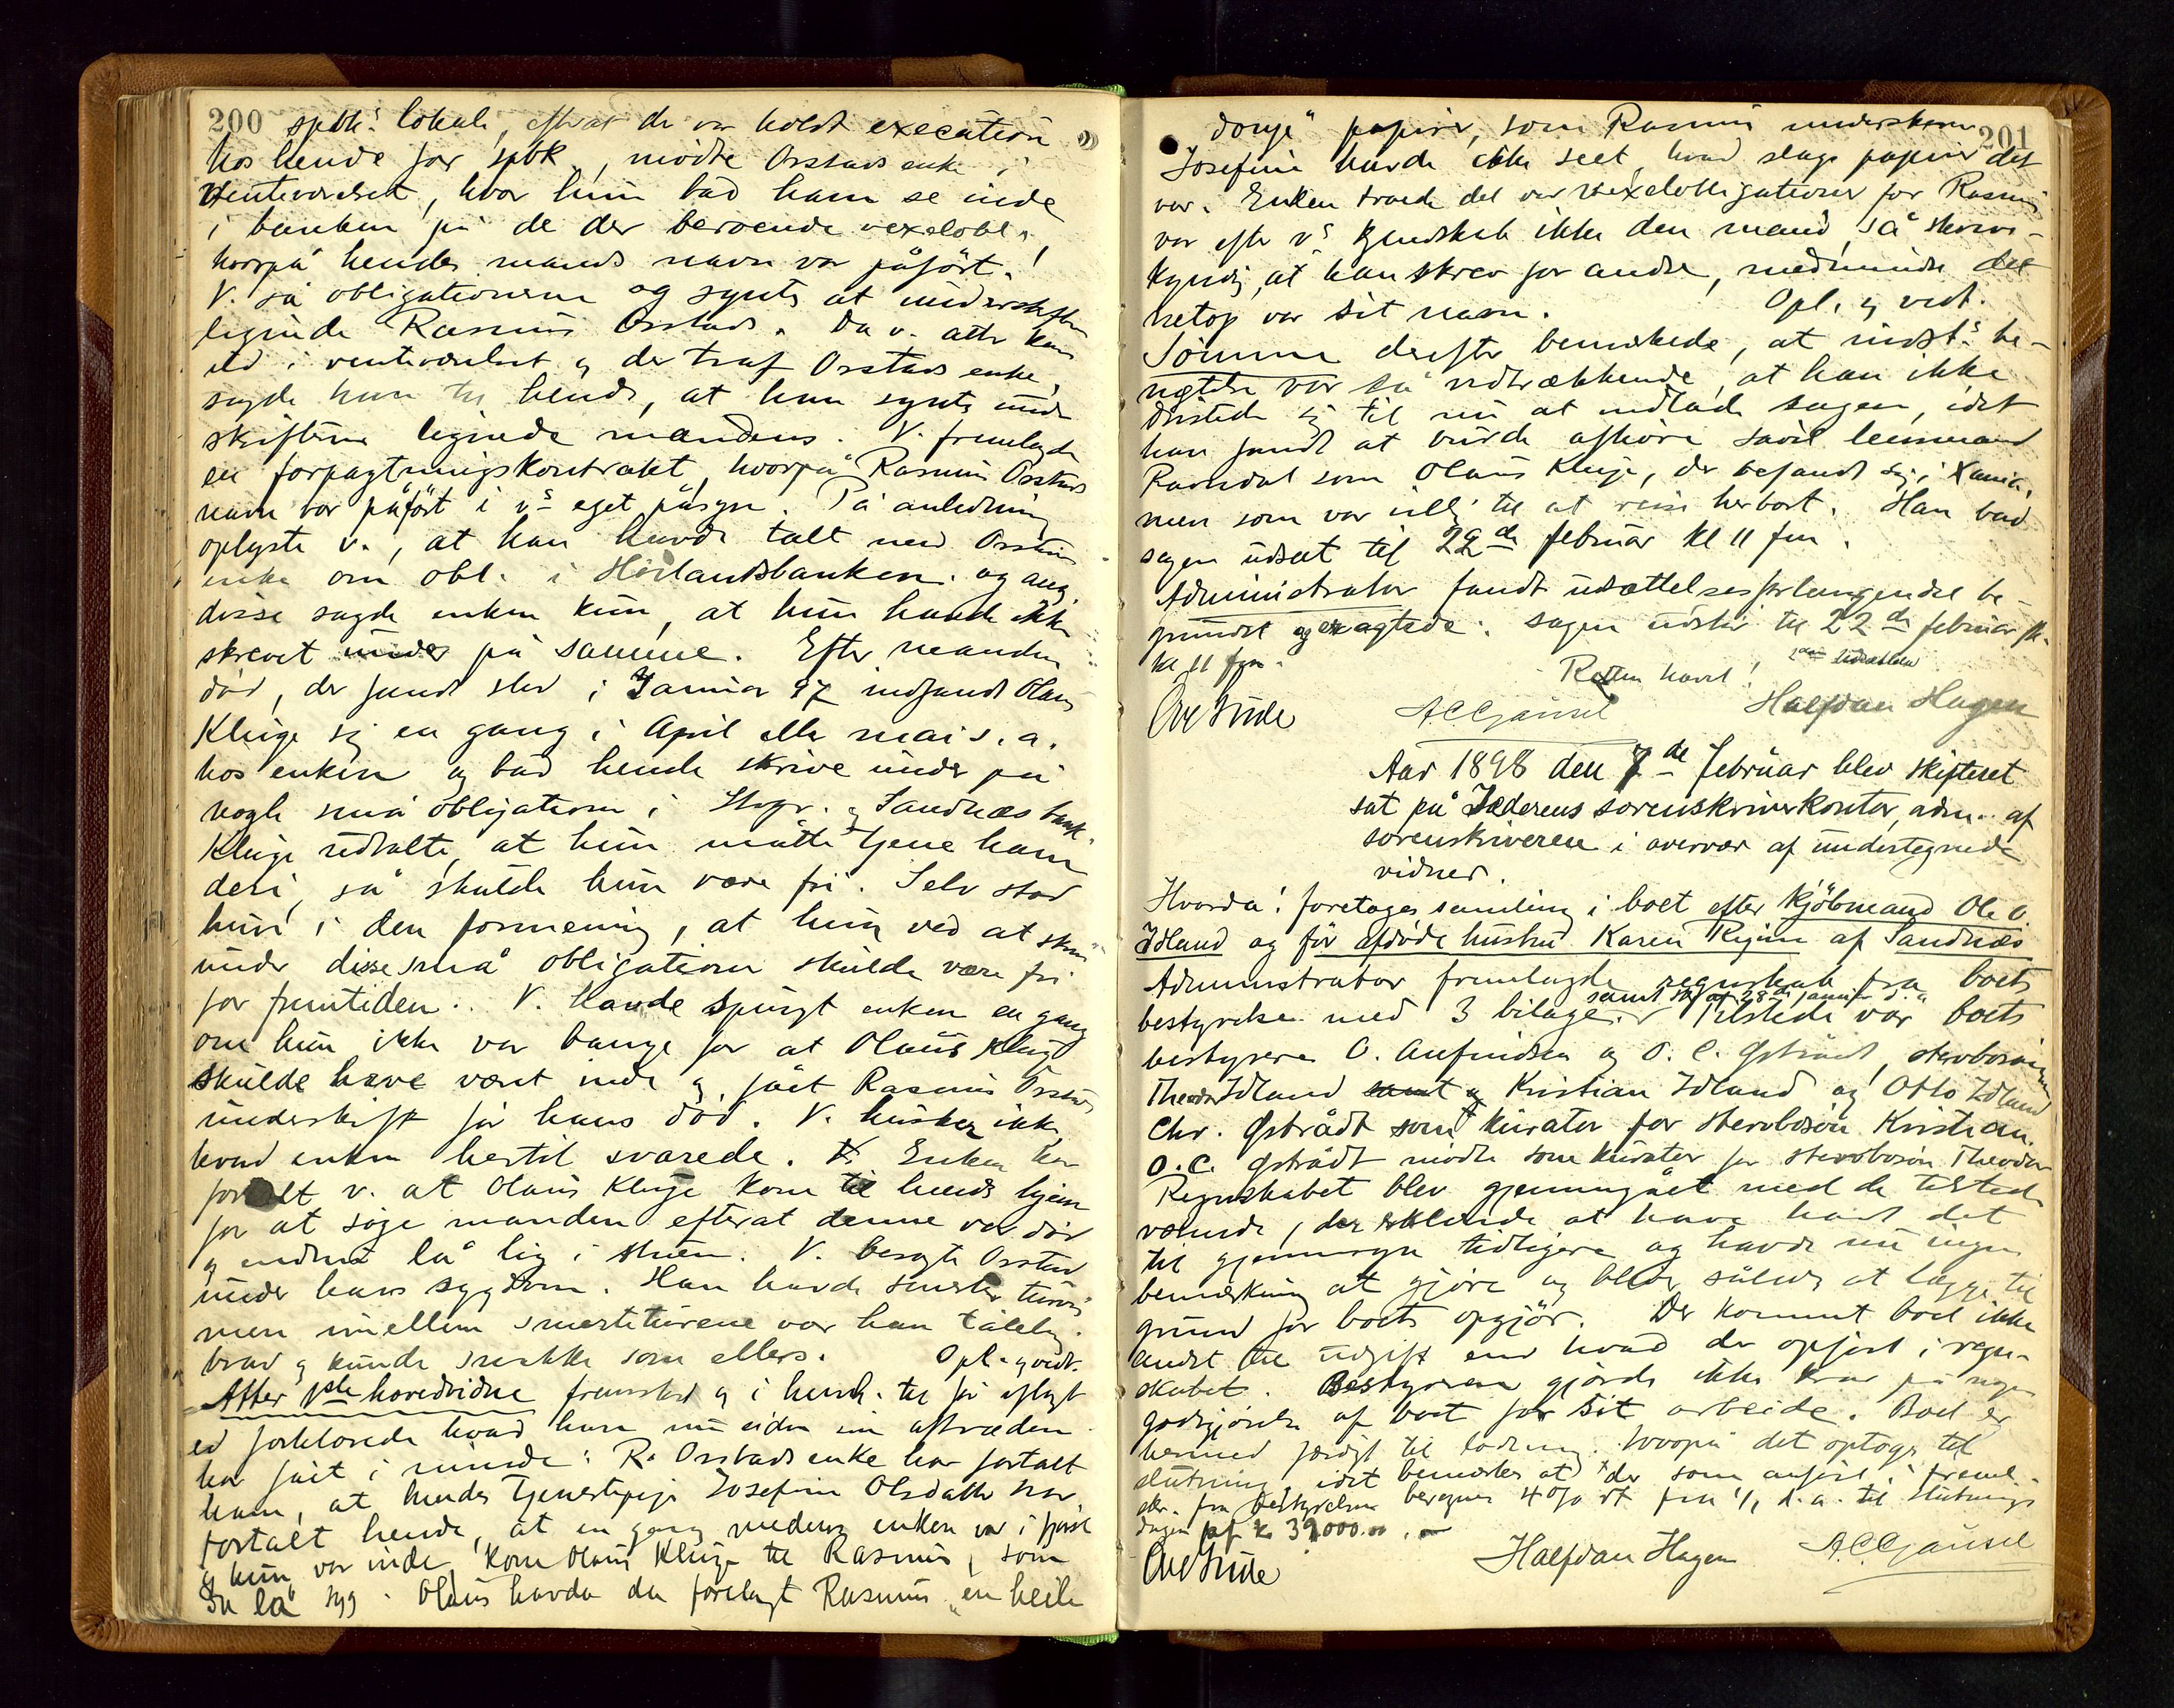 200
spbk.s lokale, efterat der var holdt execution
hos hende for spbk, mødte Orstads enke i
Venteværelset, hvor hun bad ham se inde
i banken på de der beroende vexelobl.,
hvorpå hendes mands navn var påført.
V. så obligationerne og syntes at underskriften
lignede Rasmus Orstads. Da v. atter kom
ud i venteværelset og der traf Orstads enke,
sagde han til hende, at han syntes under
skriften lignede mandens. V. fremlagde
en forpagtningskontrakt, hvorpå Rasmus Orstads
navn var påført i vs eget påsyn. På anledning
oplyste v., at han havde talt med Orstads
enke om obl. i Høilandsbanken og ang.
disse sagde enken kun, at hun havde ikke
skrevet under på samme. Efter manden
død, der fandt sted i Januar 97 indfandt Olaus
Kluge sig en gang i April eller mai s. a.
hos enken og bad hende skrive under på
nogle små obligationer i Stvgr. og Sandnæs bank.
Kluge udtalte, at hun måtte tjene ham
deri, så skulde hun være fri. Selv stod
hun i den formening, at hun ved at skrive
under disse små obligationer skulde være fri
for fremtiden. V. havde spurgt enken en gang
om hun ikke var bange for at Olaus Kluge
skulde have været inde og fået Rasmus Orstads
underskrift før hans død. V. husker ikke,
hvad enken hertil svarede. Enken har
fortalt v. at Olaus Kluge kom til hendes hjem
for at søge manden efterat denne var død
og endnu lå lig i stuen. V. besøgte Orstad
under hans sygdom. Han havde smerter turvis
men imellem smerteturene var han tålelig
bra og kunde snakke som ellers. Opl. og vedt.
Atter 1ste hovedvidne fremstod og i henh. til før aflagt
ed forklarede hvad han nu siden sin aftræden
har fået i minde: R. Orstads enke har fortalt
ham, at hendes tjenestepige Josefine Olsdatter har
fortalt hende, at en gang medens enken var i fjøset
og hun var inde, kom Olaus Kluge til Rasmus, som
da lå syg. Olaus havde da forelagt Rasmus „en heile
201
donge" papirer, som Rasmus underskrev.
Josefine havde ikke seet, hvad slags papirer det
var. Enken troede det var vexelobligationer for Rasmus
var efter vs kjendskab ikke den mand, så skrive-
kyndig, at han skrev for andre, medmindre det
netop var sit navn. Opl. og vedt.
Sømme derefter bemærkede, at indst.s be-
nægtelse var så vidtrækkende, at han ikke
dristede sig til nu at indlade sagen, idet
han fandt at burde afhøre såvel lensmand
Ravndal som Olaus Kluge, der befandt sig i Xania,
men som var villig til at reise herbort. Han bad
sagen udsat til 22de februar kl 11 fm.
Administrator fandt udsættelsesforlangendet be-
grundet og eragtede: Sagen udstår til 22de februar
kl 11 fm.
2den udsættelse
Retten hævet!
Halfdan Hagen
Aar 1898 den 7de februar blev skifteret
sat på Jæderens sorenskriverkontor, adm. af
sorenskriveren i overvær af undertegnede
vidner.
Hvorda: foretoges samling i boet efter kjøbmand Ole O.
Idland og før afdøde hustru Karen Regine af Sandnæs
Administrator fremlagde regnskab fra boets
samt skr. af 28de januar d. a.
bestyrelse med 3 bilage. Tilstede var boets
bestyrere O. Aufindsen og O. C. Østrådt, stervbosønnerne
Theodor Idland samt og Kristian Idland og Otto Idland
Chr. Østrådt som kurator for stervbosøn Kristian.
O. C. Østrådt mødte som kurator for stervbosøn Theodor
Regnskabet blev gjennemgået med de tilstede
værende, der erklærede at have havt det
til gjennemsyn tidligere og havde nu ingen
bemærkning at gjøre og bliver således at lægge til
grund for boets opgjør. Der kommer boet ikke
andet til udgift end hvad der opført i regn-
skabet. Bestyrerne gjorde ikke krav på nogen
godtgjørelse af boet for sit arbeide. Boet er
hermed færdigt til lodning, hvorpå det optoges til
slutning, idet bemærkes at der som anført i freml.
skr. fra bestyrelsen beregnes 4% rt. fra 1/1 d. a. til slutnings
dagen af kr 39000.00.
Halfdan Hagen